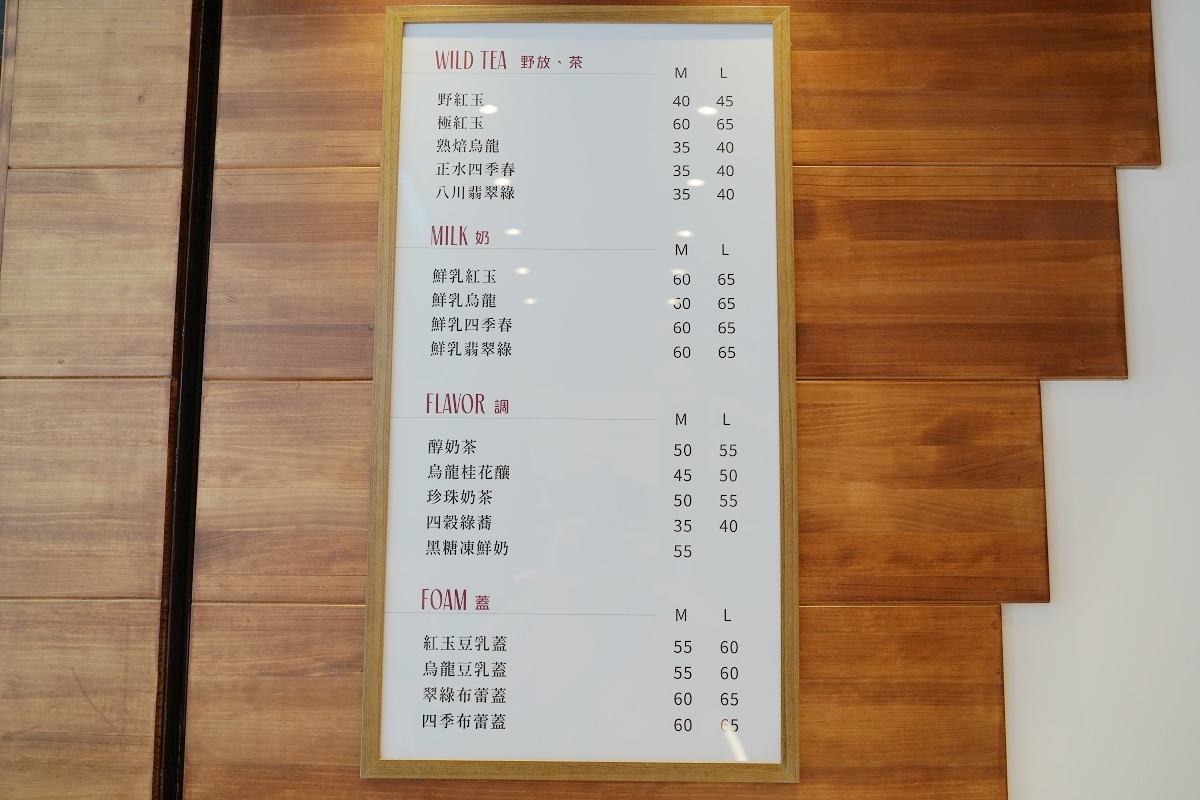 WILD TEA 野放、茶 M L
野紅玉 40 45
極紅玉 60 65
熟焙烏龍 35 40
正水四季春 35 40
八川翡翠綠 35 40
MILK 奶 M L
鮮乳紅玉 60 65
鮮乳烏龍 60 65
鮮乳四季春 60 65
鮮乳翡翠綠 60 65
FLAVOR 調 M L
醇奶茶 50 55
烏龍桂花釀 45 50
珍珠奶茶 50 55
四穀綠蕎 35 40
黑糖凍鮮奶 55
FOAM 蓋 M L
紅玉豆乳蓋 55 60
烏龍豆乳蓋 55 60
翠綠布蕾蓋 60 65
四季布蕾蓋 60 65